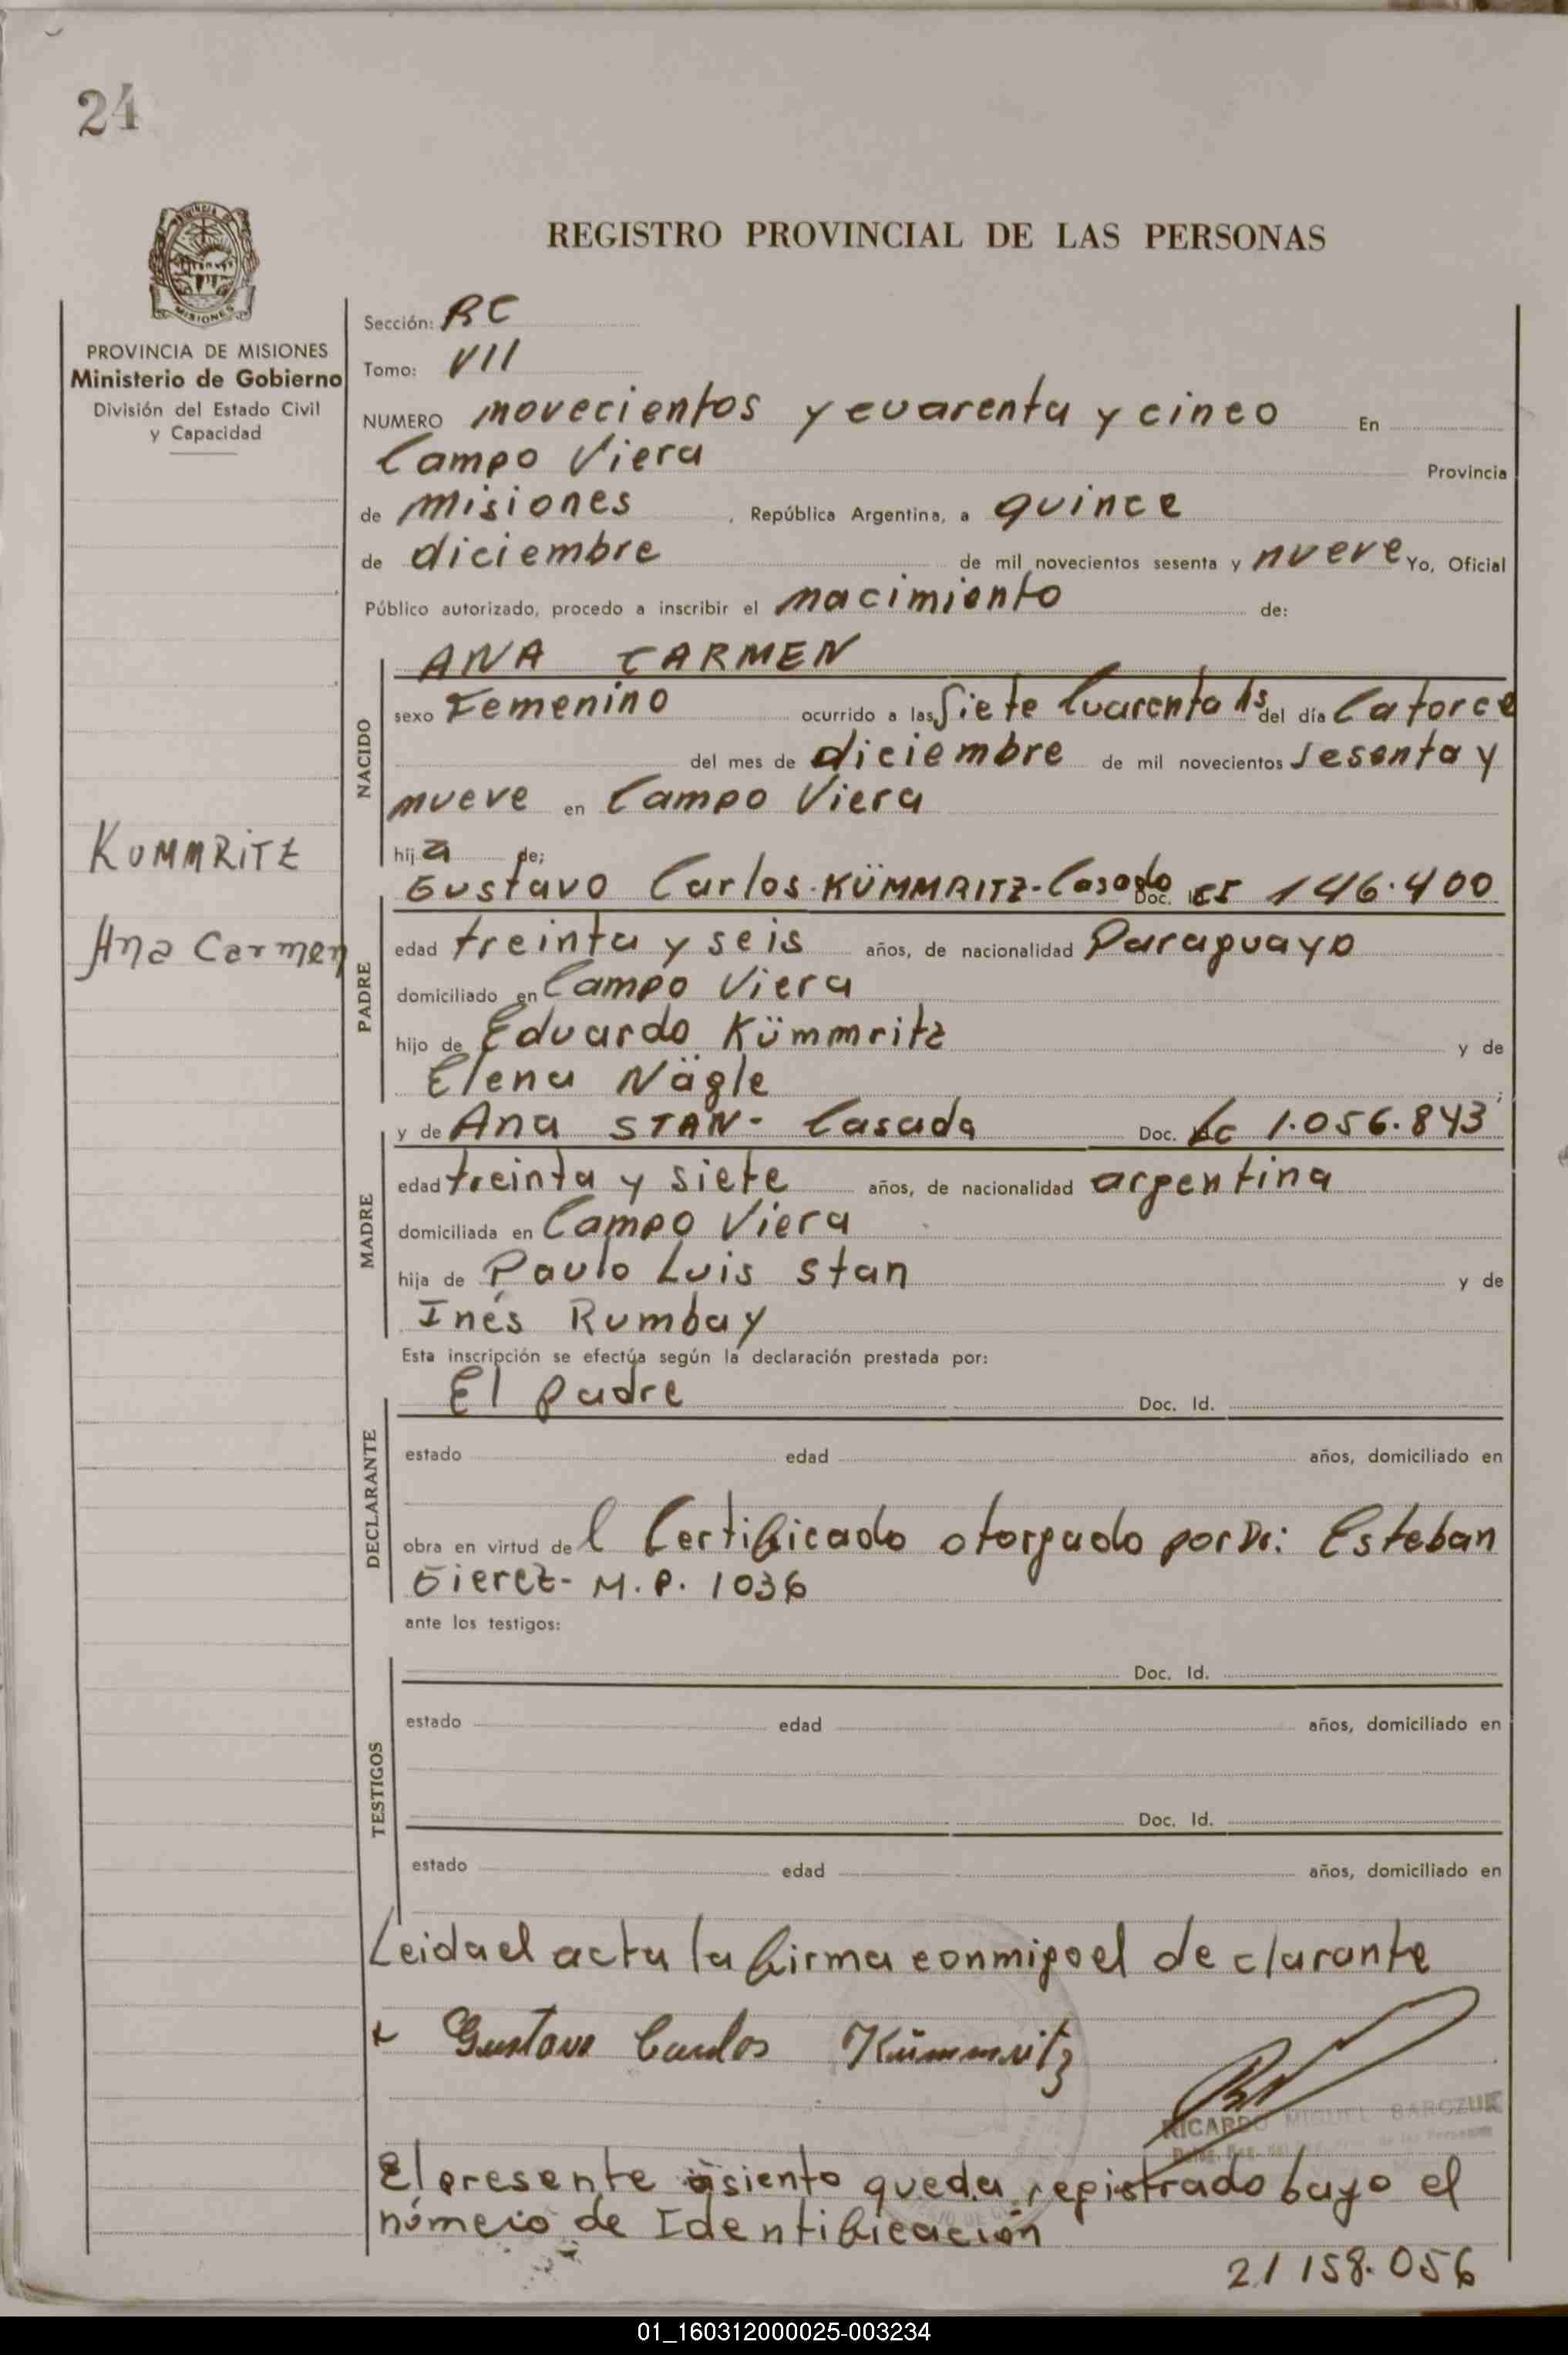 24
MISIONES
PROVINCIA DE MISIONES
Ministerio de Gobierno
División del Estado Civil
y Capacidad
KUMMRITZ
Ana Carmen
REGISTRO PROVINCIAL DE LAS PERSONAS
Sección: RC
Tomo: VII
NUMERO novecientos y cuarenta y cinco En
Campo Viera Provincia
de misiones, República Argentina, a quince
de diciembre de mil novecientos sesenta y nueve Yo, Oficial
Público autorizado, procedo a inscribir el nacimiento de:
NACIDO
ANA CARMEN
sexo Femenino ocurrido a las Siete Cuarenta hs del día Catorce
del mes de diciembre de mil novecientos sesenta y
nueve en Campo Viera
hij a de;
PADRE
Gustavo Carlos KÜMMRITZ-Casado Doc. 146.400
edad treinta y seis años, de nacionalidad Paraguayo
domiciliado en Campo Viera
hijo de Eduardo Kümmritz y de
Elena Nägle;
MADRE
y de Ana STAN- Casada Doc. Lc 1.056.843
edad treinta y siete años, de nacionalidad argentina
domiciliada en Campo Viera
hija de Paulo Luis Stan y de
Inés Rumbay
Esta inscripción se efectúa según la declaración prestada por:
DECLARANTE
El padre Doc. Id.
estado edad años, domiciliado en
obra en virtud de l Certificado otorgado por Dr: Esteban
Gierez- M.P. 1036
ante los testigos:
TESTIGOS
Doc. Id.
estado edad años, domiciliado en
Doc. Id.
estado edad años, domiciliado en
Leida el acta la firma conmigo el declarante
Gustavo Carlos Kümmritz
RICARDO MIGUEL BARCZUK
El presente asiento queda registrado bajo el
número de Identificación
21158.056
01_160312000025-003234